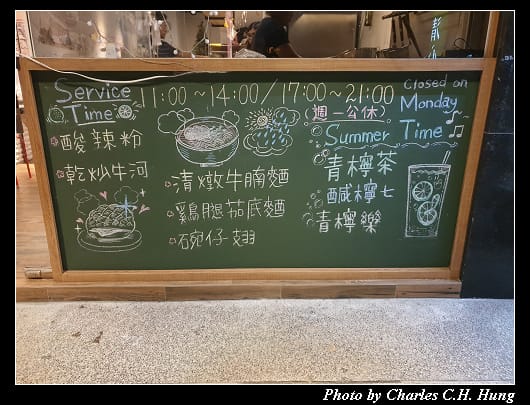 Service
Time
11:00 ~14:00/17:00~21:00
Closed on
Monday
週一公休
Summer Time
酸辣粉
乾炒牛河
清燉牛腩麵
雞腿茄底麵
碗仔翅
青檸茶
鹹檸七
青檸樂
Photo by Charles C.H. Hung